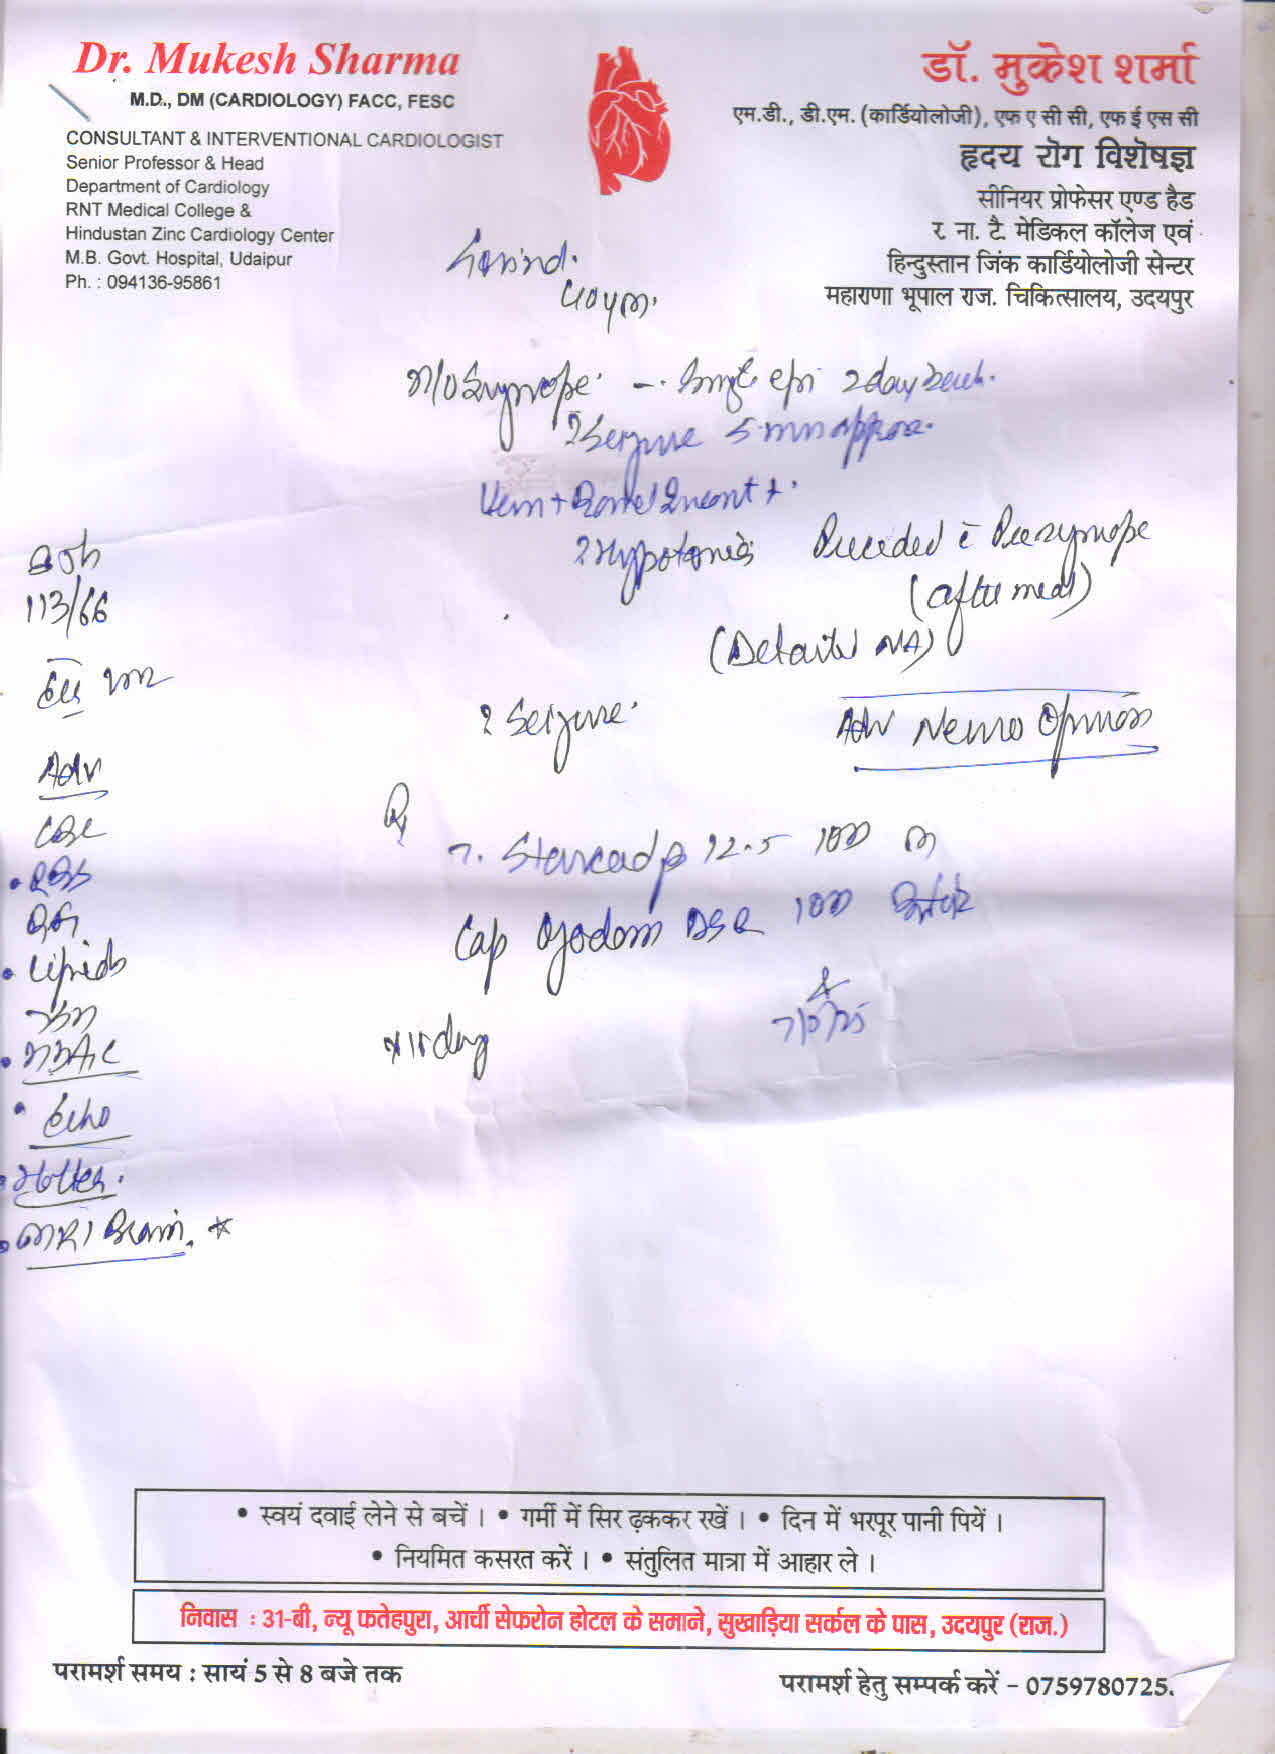 Dr. Mukesh Sharma
M.D., DM (CARDIOLOGY) FACC, FESC
CONSULTANT & INTERVENTIONAL CARDIOLOGIST
Senior Professor & Head
Department of Cardiology
RNT Medical College &
Hindustan Zinc Cardiology Center
M.B. Govt. Hospital, Udaipur
Ph. : 094136-95861
डॉ. मुकेश शर्मा
एम.डी., डी.एम. (कार्डियोलोजी), एफ ए सी सी, एफ ई एस सी
हृदय रोग विशेषज्ञ
सीनियर प्रोफेसर एण्ड हैड
र. ना. टै. मेडिकल कॉलेज एवं
हिन्दुस्तान जिंक कार्डियोलोजी सेन्टर
महाराणा भूपाल राज. चिकित्सालय, उदयपुर
Govind
H/O Syncope - Single epi 2 day back
? Seizure 5 min approx.
Bowel Incont +
? Hypotonia Preceded c Presyncope
(after meal)
(Details NA)
113/66
? Seizure
Adv Neuro Opinion
Adv
CBC
RBS
RFT
Lipids
HbA1C
Echo
Holter
MRI Brain *
Rx
T. Starcad 12.5 100
Cap DSR 100
x 15 day
7/5/25
• स्वयं दवाई लेने से बचें । • गर्मी में सिर ढ़ककर रखें । • दिन में भरपूर पानी पियें ।
• नियमित कसरत करें । • संतुलित मात्रा में आहार ले ।
निवास : 31-बी, न्यू फतेहपुरा, आर्ची सेफरोन होटल के समाने, सुखाड़िया सर्कल के पास, उदयपुर (राज.)
परामर्श समय : सायं 5 से 8 बजे तक
परामर्श हेतु सम्पर्क करें – 0759780725.